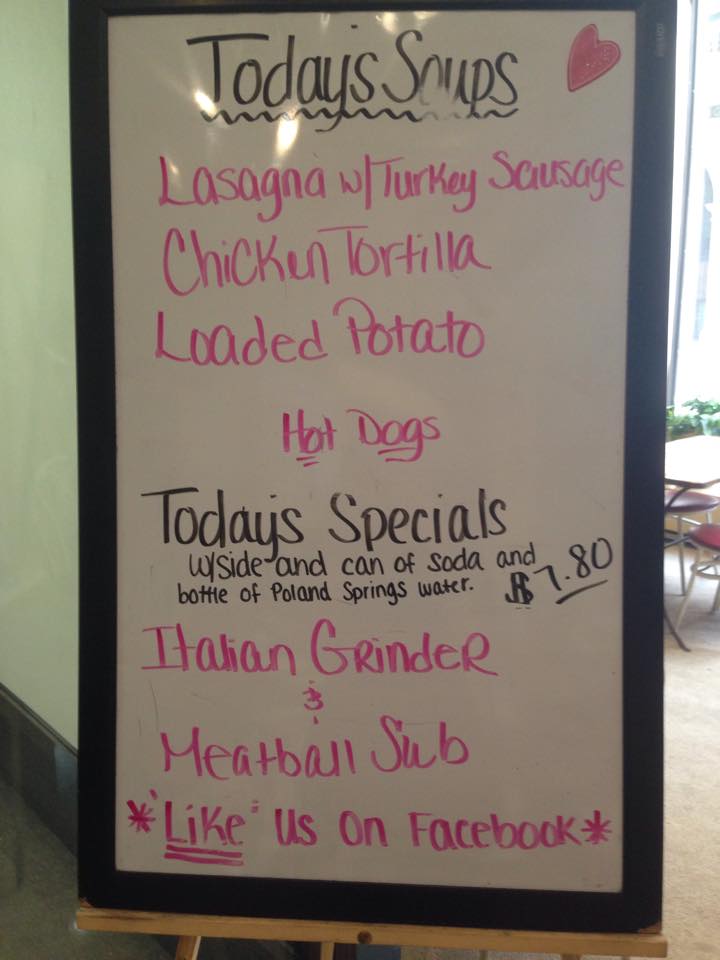 Today's Soups
Lasagna w/Turkey Sausage
Chicken Tortilla
Loaded Potato
Hot Dogs
Today's Specials
w/side and can of soda and
bottle of Poland Springs water. $7.80
Italian Grinder
&
Meatball Sub
*"Like" us on Facebook*